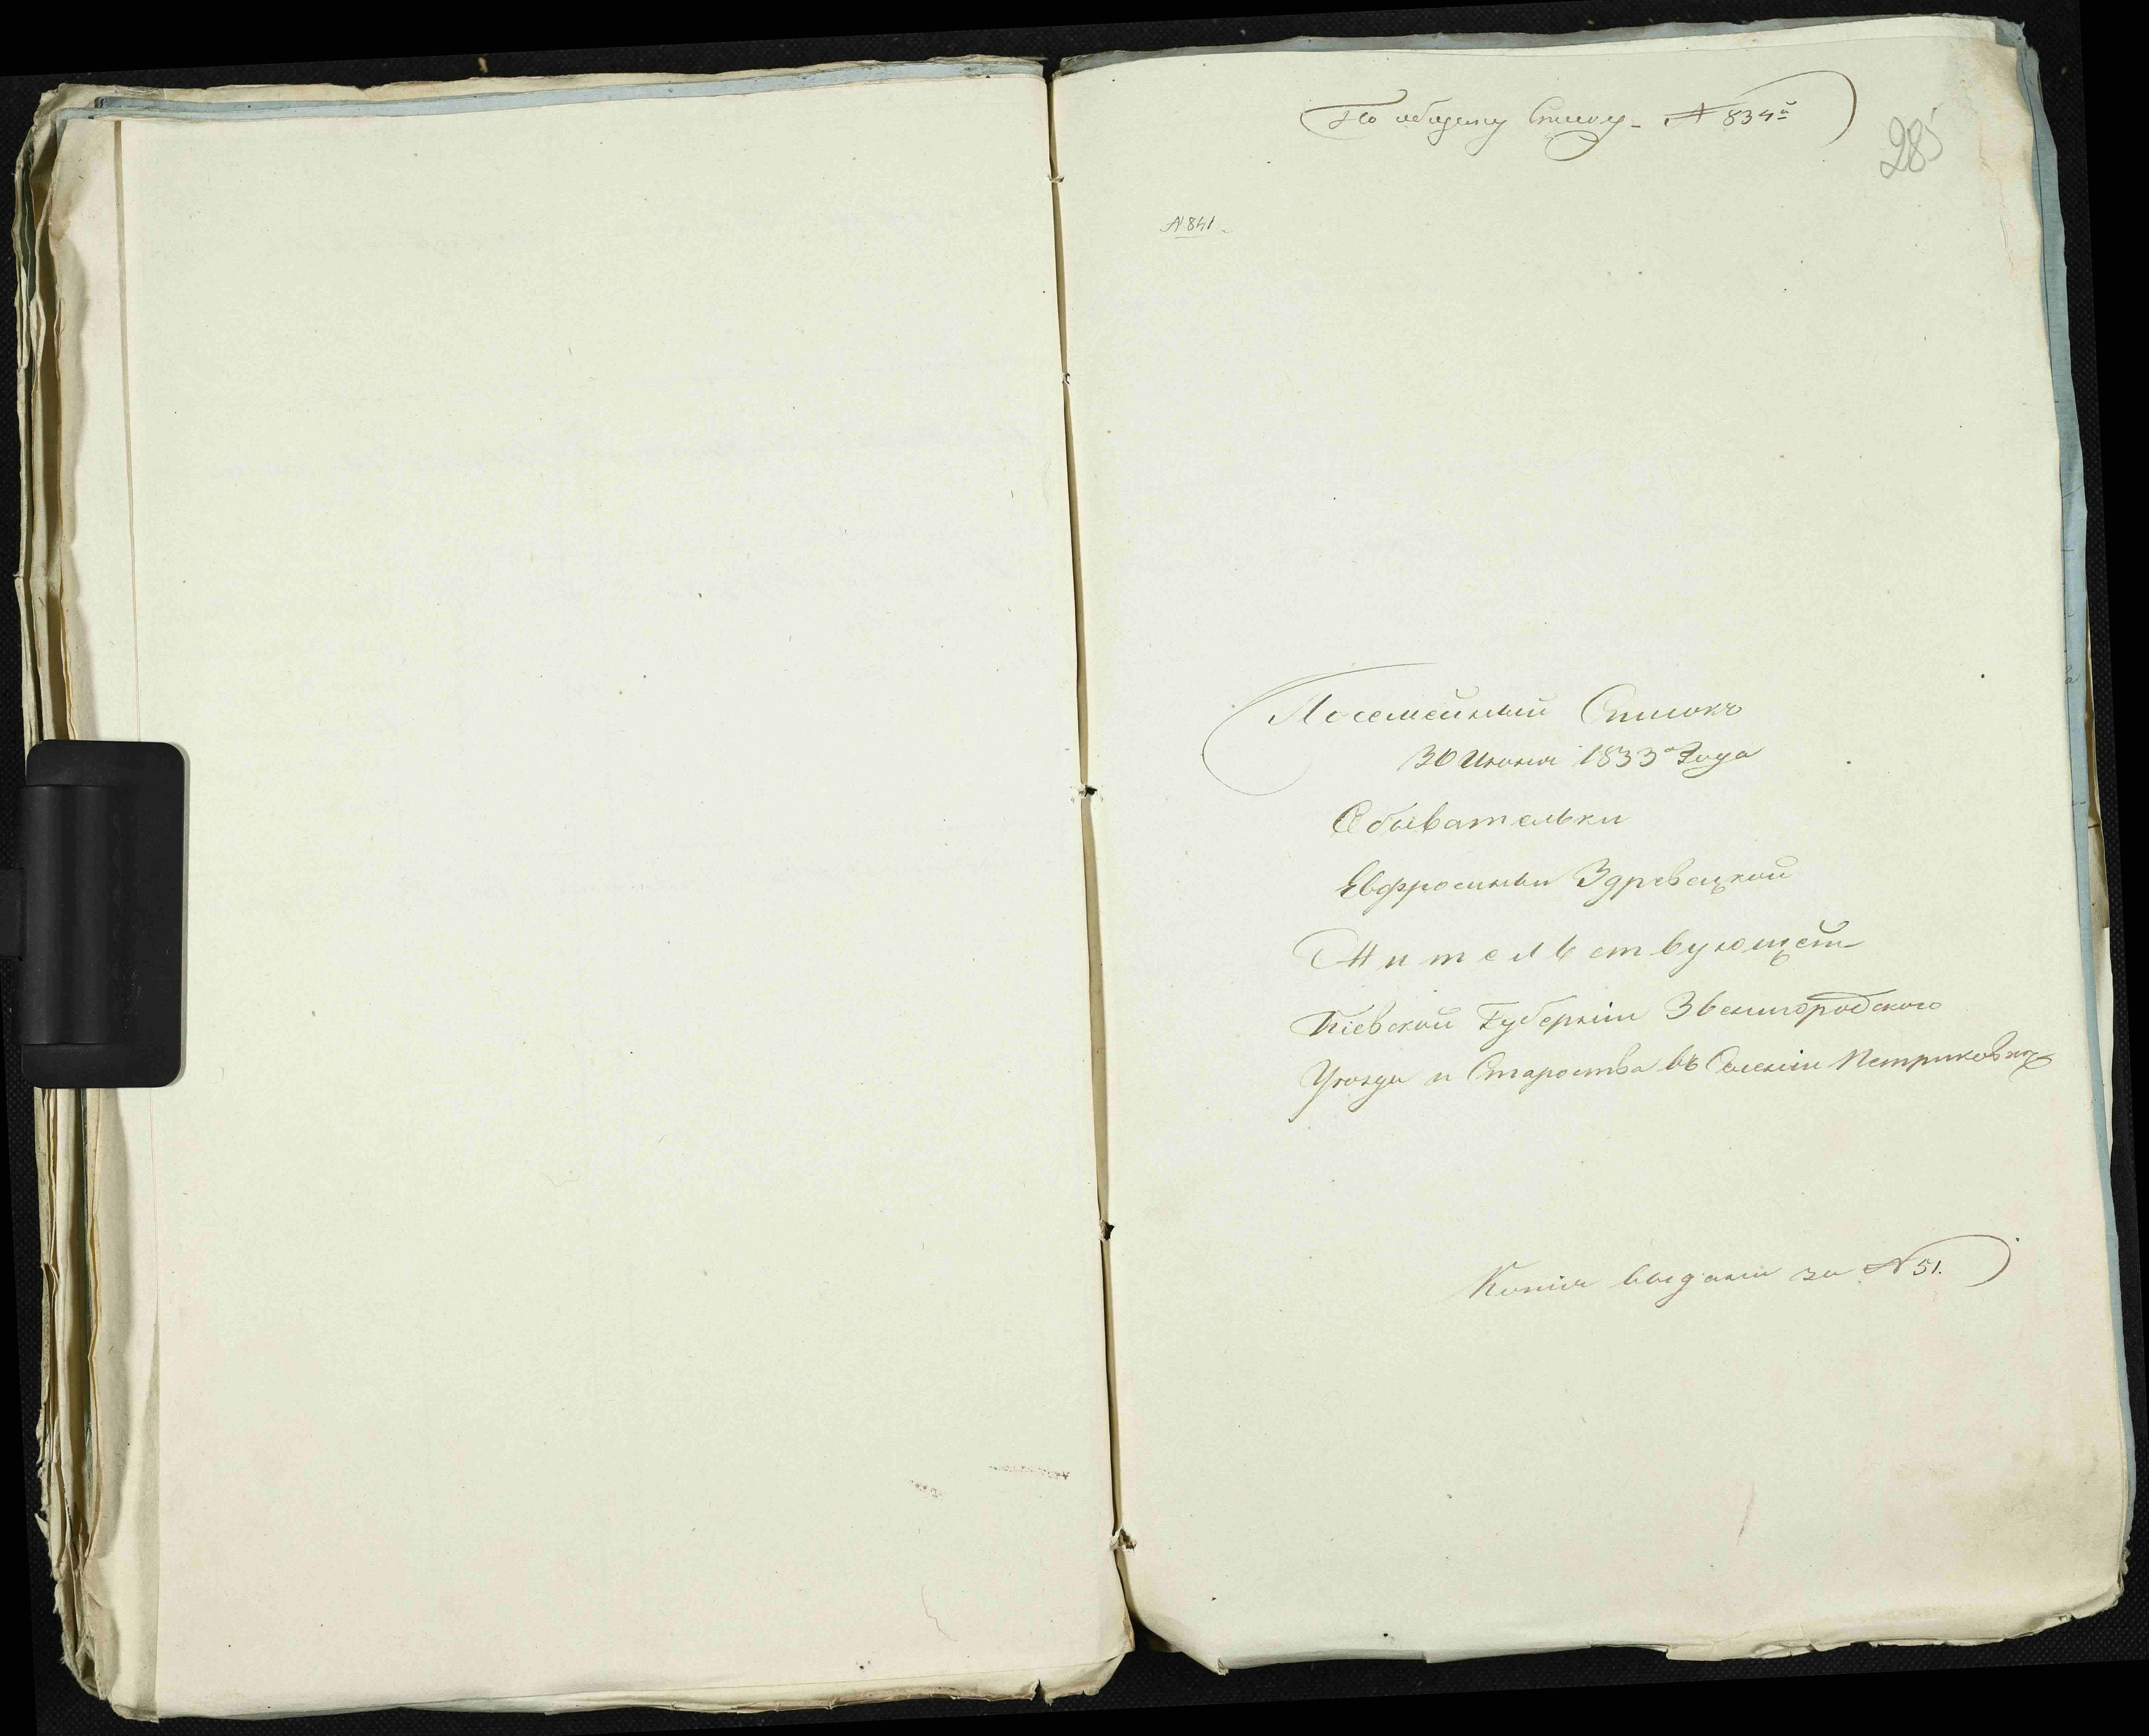 По общему Списку - № 834й
285
№ 841.
Посемейный Списокъ
30 Июня 1833го Года
Обывательки
Евфросиньи Здревецкой
Жительствующей
Кіевской Губерніи Звенигородского
Уезда и Староства въ Селеніи Петриковкѣ
Копія выдана за № 51.